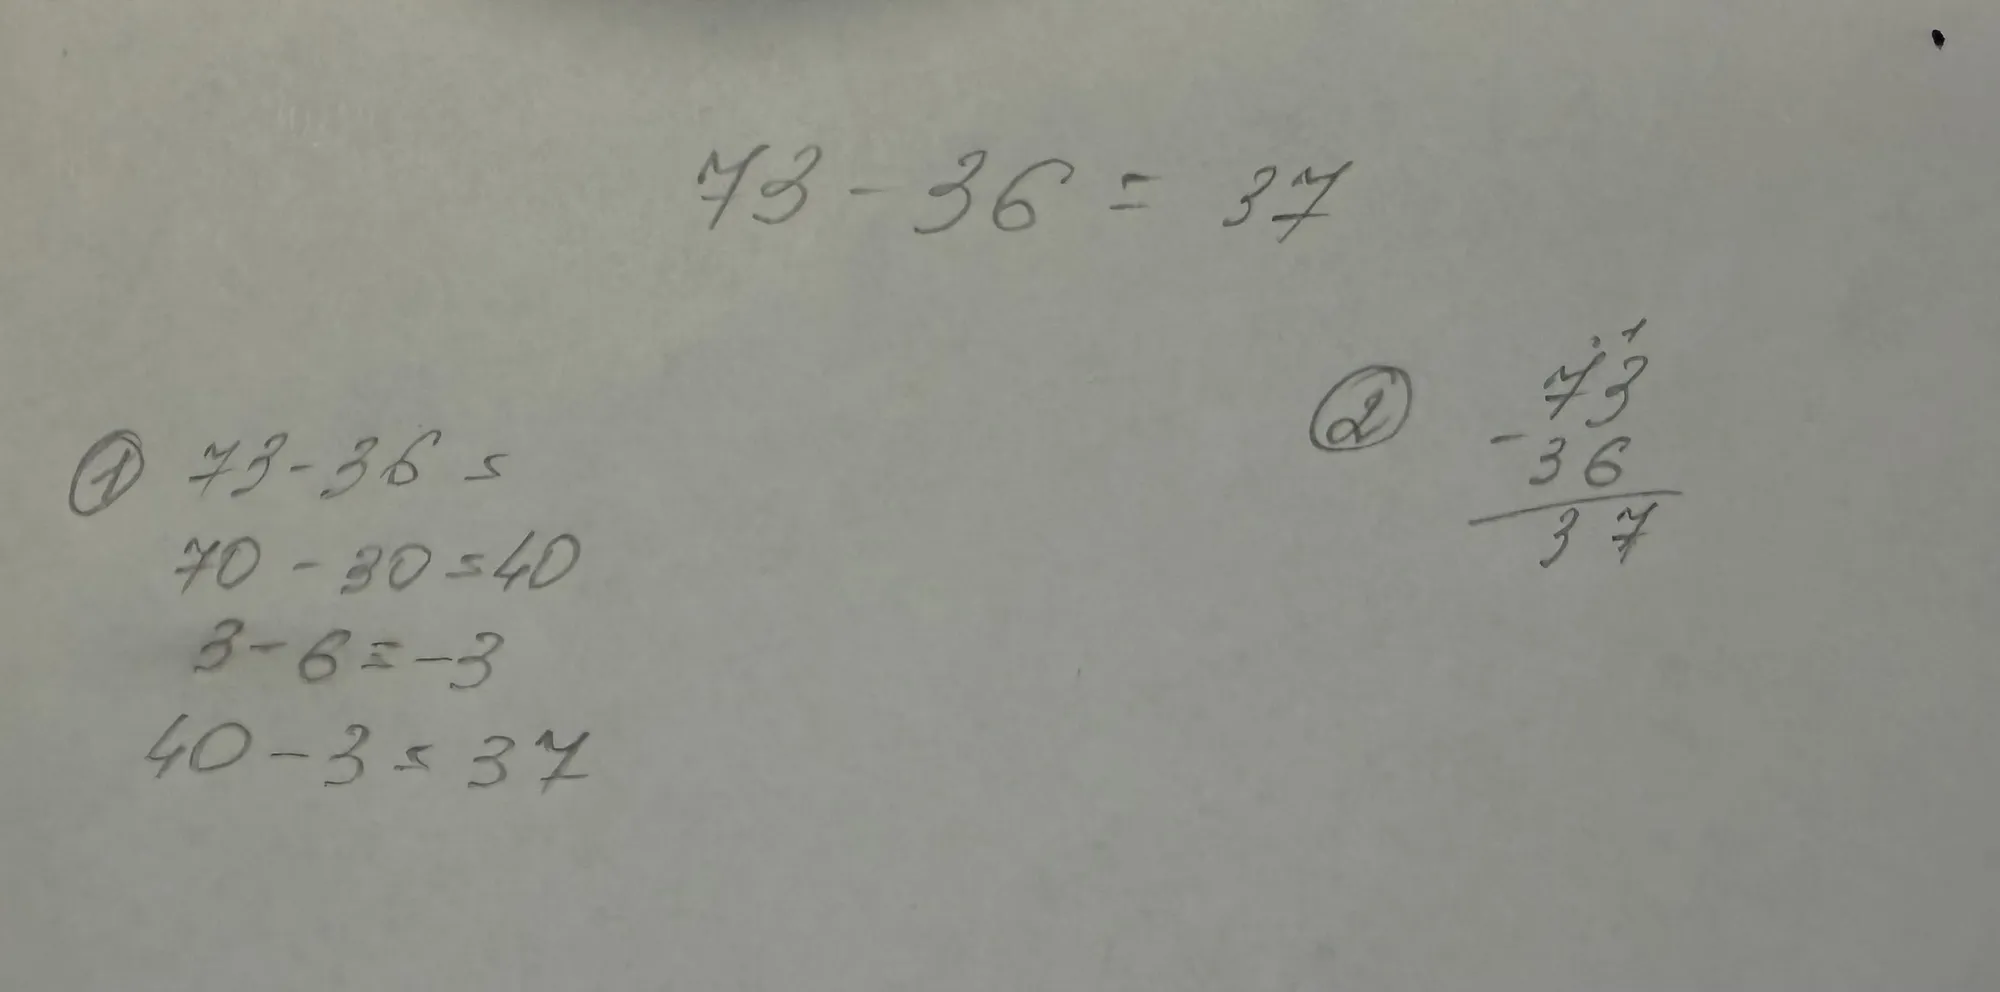 73 - 36 = 37
① 73 - 36 =
70 - 30 = 40
3 - 6 = -3
40 - 3 = 37
②
. 1
73
- 36
37